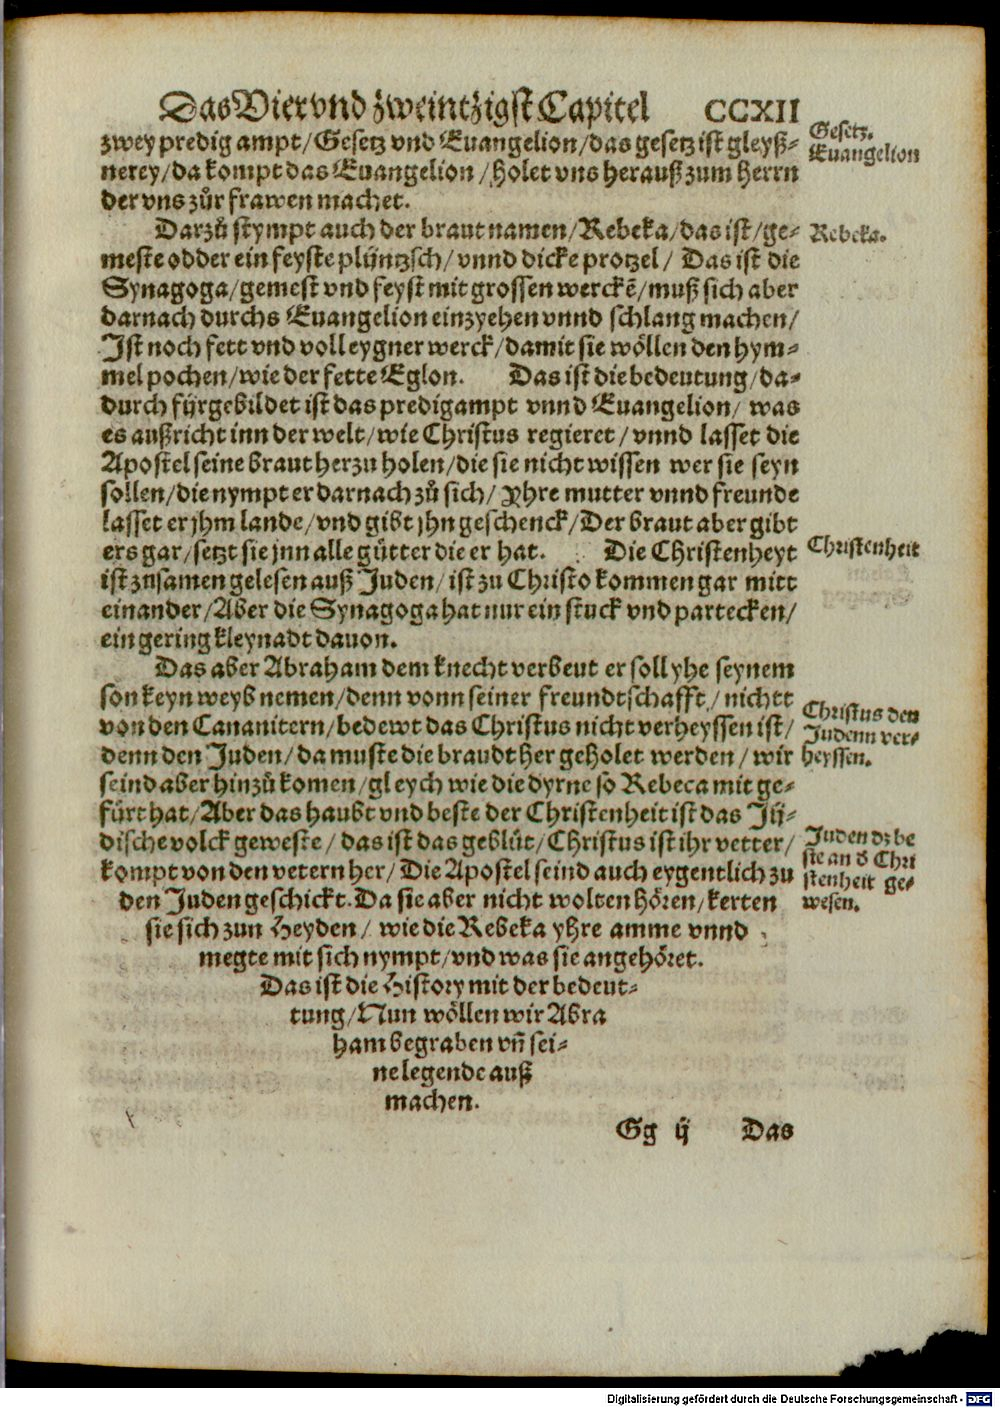 Das Vier vnd zweintzigst Capitel CCXII
zwey predig ampt/Gesetz vnd Euangelion/das gesetz ist gleyß-
nerey/da kompt das Euangelion/holet vns herauß zum Herrn
der vns zůr frawen machet.
Gesetz.
Euangelion
Darzů stympt auch der braut namen/Rebeka/das ist/ge-
Rebeka.
meste odder ein feyste plüntzsch/vnnd dicke protzel/ Das ist die
Synagoga/gemest vnd feyst mit grossen werckē/muß sich aber
darnach durchs Euangelion einzyehen vnnd schlang machen/
Ist noch fett vnd voll eygner werck/damit sie wöllen den hym-
mel pochen/wie der fette Eglon. Das ist die bedeutung/da-
durch fürgebildet ist das predigampt vnnd Euangelion/ was
es außricht inn der welt/wie Christus regieret/vnnd lasset die
Apostel seine braut herzu holen/die sie nicht wissen wer sie seyn
sollen/die nympt er darnach zů sich/ Yhre mutter vnnd freunde
lasset er jhm lande/vnd gibt jhn geschenck/Der braut aber gibt
ers gar/setzt sie jnn alle gütter die er hat. Die Christenheyt
Christenheit
ist zusamen gelesen auß Juden/ist zu Christo kommen gar mitt
einander/Aber die Synagoga hat nur ein stuck vnd partecken/
ein gering kleynadt dauon.
Das aber Abraham dem knecht verbeut er soll yhe seynem
son keyn weyb nemen/denn vonn seiner freundtschafft/nichtt
von den Cananitern/bedewt das Christus nicht verheyssen ist/
denn den Juden/da muste die braudt her geholet werden/wir
Christus den
Judenn ver-
heyssen.
seind aber hinzů komen/gleych wie die dyrne so Rebeca mit ge-
fürt hat/Aber das haubt vnd beste der Christenheit ist das Jü-
dische volck geweste/das ist das geblüt/Christus ist ihr vetter/
kompt von den vetern her/Die Apostel seind auch eygentlich zu
den Juden geschickt. Da sie aber nicht wolten hören/kerten
Juden dz be
ste an d̕ Chri
stenheit ge-
wesen.
sie sich zun Heyden/ wie die Rebeka yhre amme vnnd
megte mit sich nympt/vnd was sie angehöret.
Das ist die History mit der bedeut-
tung/Nun wöllen wir Abra
ham begraben vn̄ sei-
ne legende auß
machen.
Gg ij Das
Digitalisierung gefördert durch die Deutsche Forschungsgemeinschaft - DFG